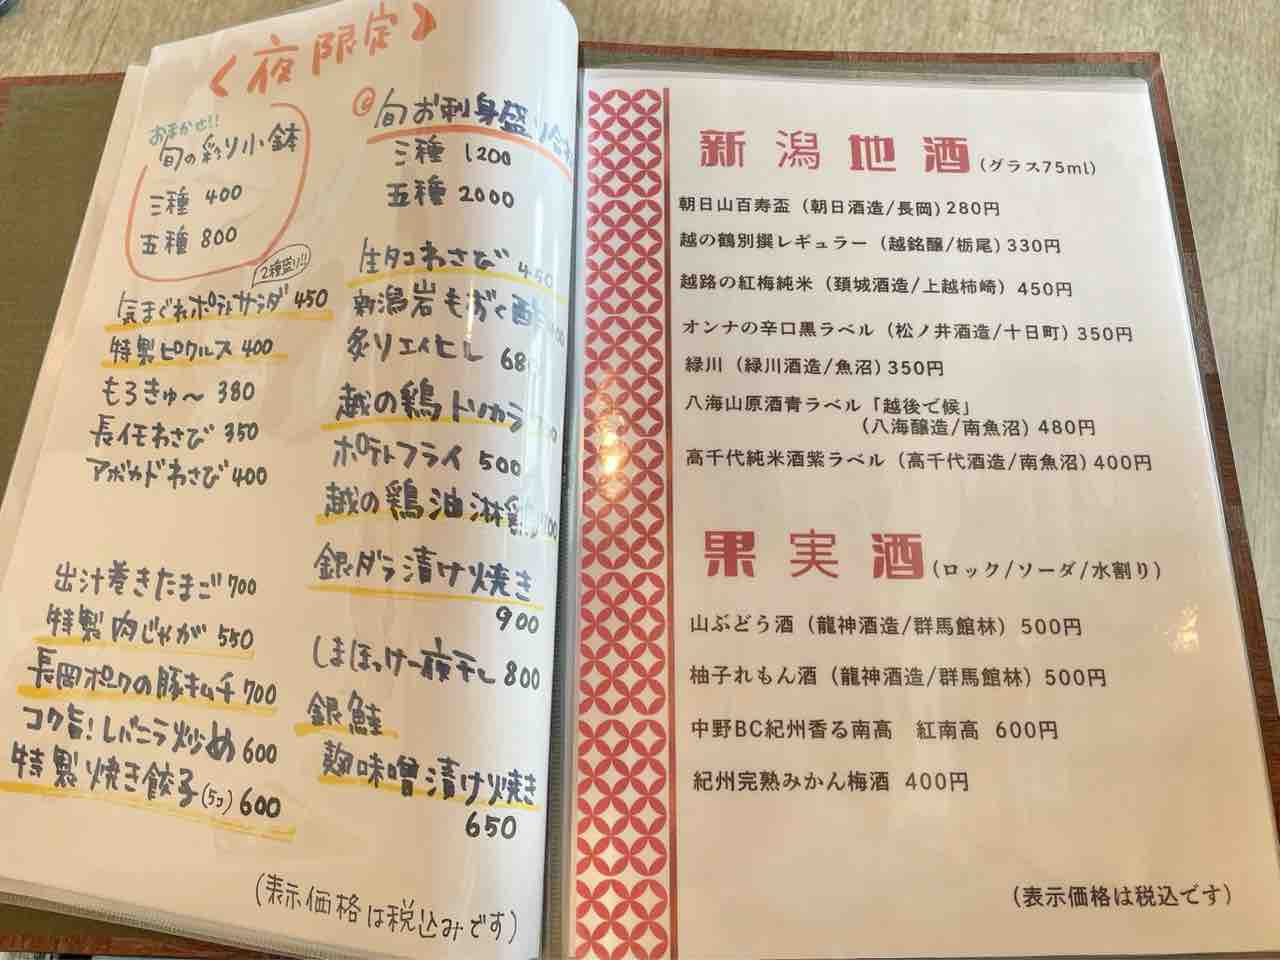 〈夜限定〉
おまかせ!!
旬の彩り小鉢
三種 400
五種 800
2種盛り!!
気まぐれポテトサラダ 450
特製ピクルス 400
もろきゅ〜 380
長イモわさび 350
アボカドわさび 400
出汁巻きたまご 700
特製肉じゃが 550
長岡ポークの豚キムチ 700
コク旨!レバニラ炒め 600
特製焼き餃子(5コ) 600
旬お刺身盛り合わ
三種 1200
五種 2000
生タコわさび 450
新潟岩もずく酢
炙りエイヒレ 680
越の鶏トリカラ
ポテトフライ 500
越の鶏油淋鶏
銀ダラ漬け焼き
900
しまほっけ一夜干し 800
銀鮭
麹味噌漬け焼き
650
(表示価格は税込みです)
新潟地酒(グラス75ml)
朝日山百寿盃(朝日酒造/長岡)280円
越の鶴別撰レギュラー(越銘醸/栃尾)330円
越路の紅梅純米(頚城酒造/上越柿崎)450円
オンナの辛口黒ラベル(松ノ井酒造/十日町)350円
緑川(緑川酒造/魚沼)350円
八海山原酒青ラベル「越後で候」
(八海醸造/南魚沼)480円
高千代純米酒紫ラベル(高千代酒造/南魚沼)400円
果実酒(ロック/ソーダ/水割り)
山ぶどう酒(龍神酒造/群馬館林)500円
柚子れもん酒(龍神酒造/群馬館林)500円
中野BC紀州香る南高 紅南高 600円
紀州完熟みかん梅酒 400円
(表示価格は税込です)